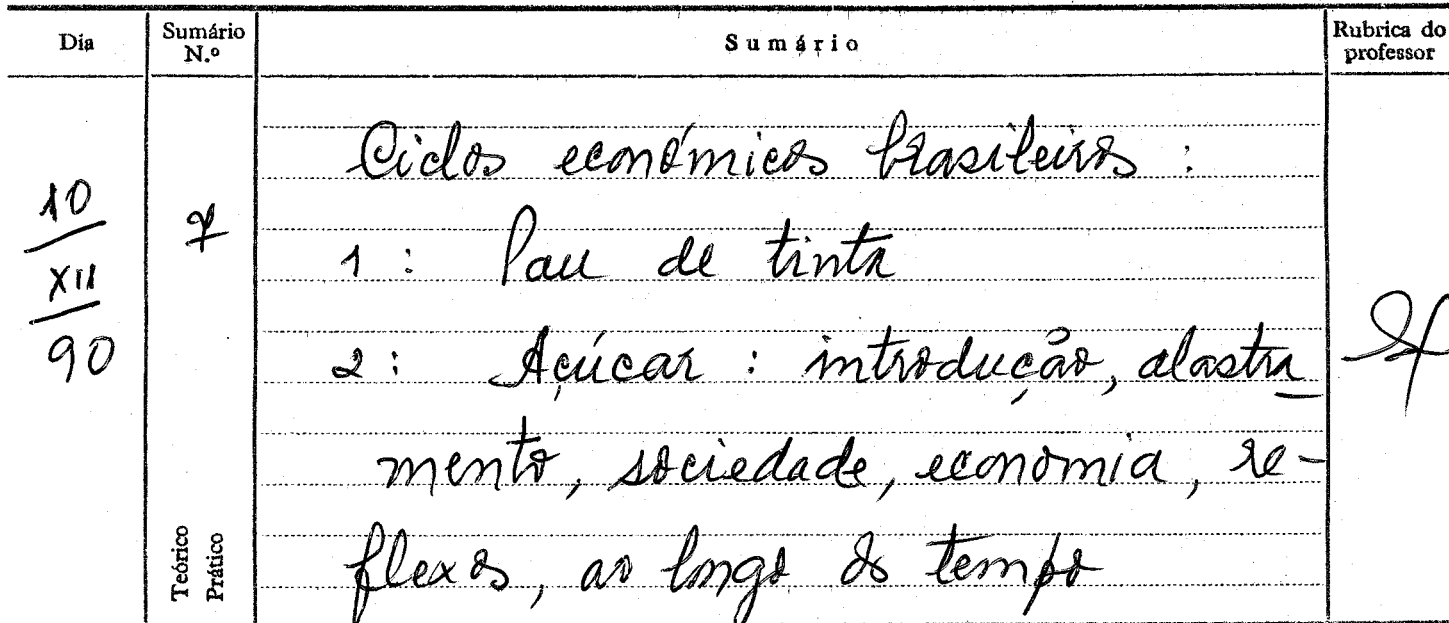 Dia
Sumário
N.º
Sumário
Rubrica do
professor
10
XII
90
7
Ciclos económicos brasileiros :
1 : Pau de tinta
2 : Açúcar : introdução, alastra
mento, sociedade, economia, re-
flexos, ao longo do tempo
Teórico
Prático